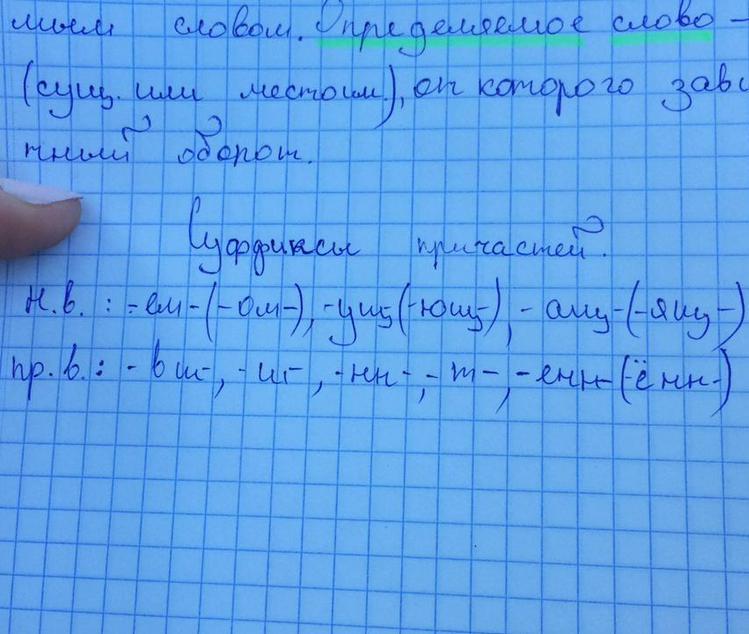 мым словом. Определяемое слово -
(сущ. или местоим.), от которого зави
тный оборот.
Суффиксы причастей.
н.в. : -ем-(-ом-), -ущ(-ющ-), -ащ-(-ящ-)
пр.в.: -вш-, -ш-, -нн-, -т-, -енн-(-ённ-)